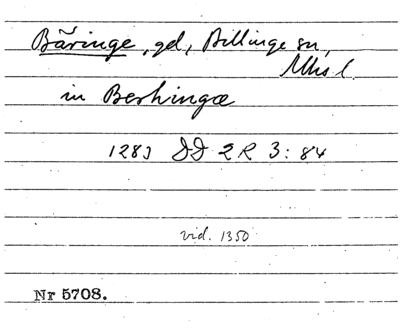 Bäringe, gd, Billinge sn,
Mhs l.
in Berhingæ
1283 DD 2 R 3: 84
vid. 1350
Nr 5708.